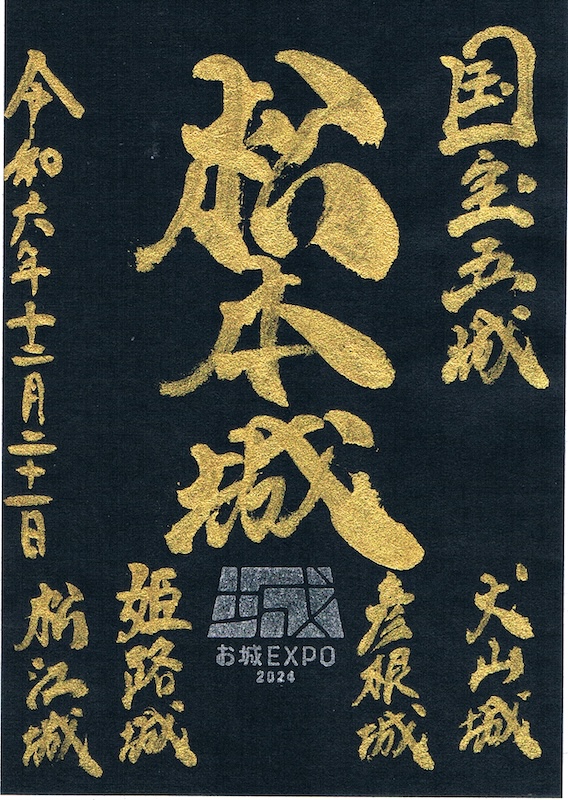 国宝五城
松本城
令和六年十二月二十一日
犬山城
彦根城
姫路城
松江城
城
お城EXPO
2024